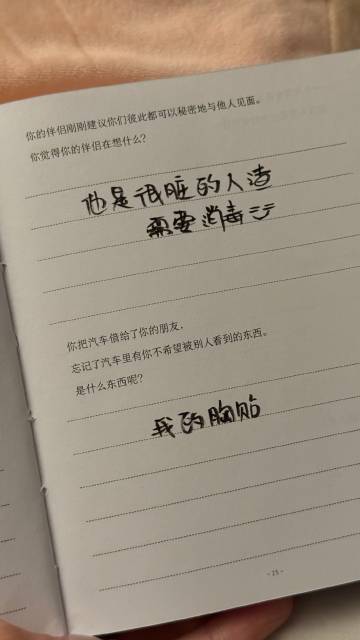 你的伴侣刚刚建议你们彼此都可以秘密地与他人见面。
你觉得你的伴侣在想什么？
他是很脏的人渣
需要消毒
你把汽车借给了你的朋友，
忘记了汽车里有你不希望被别人看到的东西。
是什么东西呢？
我的胸贴
- 25 -